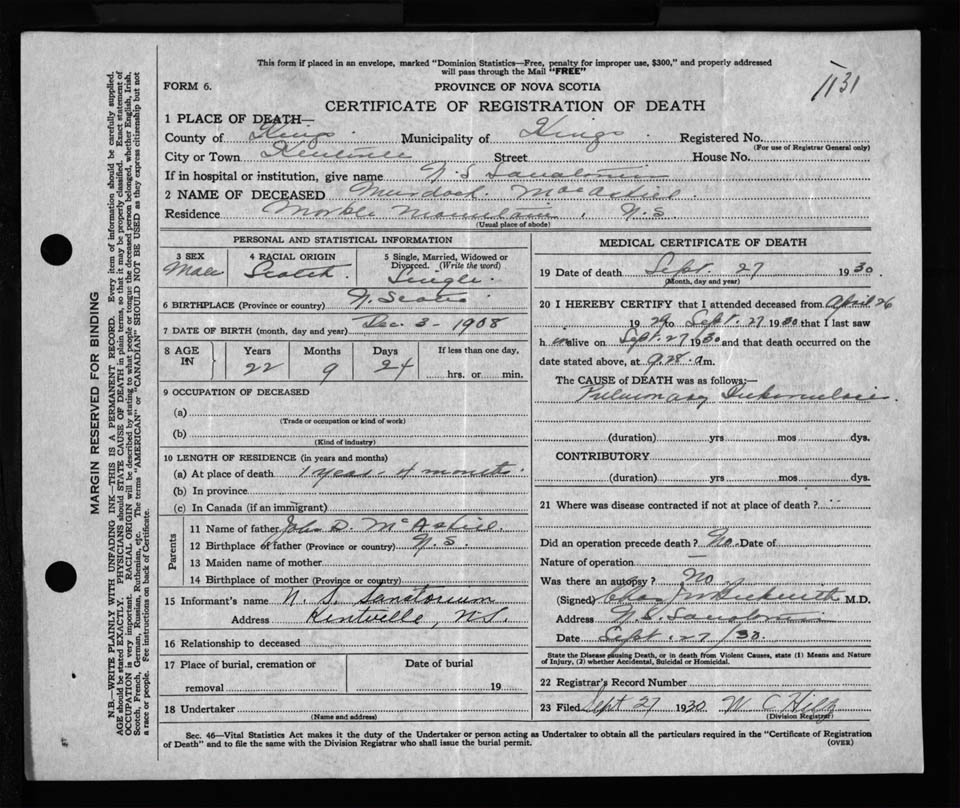 This form if placed in an envelope, marked "Dominion Statistics—Free, penalty for improper use, $300," and properly addressed
will pass through the Mail "FREE"
1131
FORM 6.
PROVINCE OF NOVA SCOTIA
CERTIFICATE OF REGISTRATION OF DEATH
1 PLACE OF DEATH—
County of Kings. Municipality of Kings. Registered No.
(For use of Registrar General only)
City or Town Kentville Street House No.
If in hospital or institution, give name N.S Sanatorium
2 NAME OF DECEASED Murdoch MacAskill.
Residence Marble Mountain, N.S.
(Usual place of abode)
PERSONAL AND STATISTICAL INFORMATION
3 SEX 4 RACIAL ORIGIN 5 Single, Married, Widowed or
Divorced. (Write the word)
Male Scotch. Single.
6 BIRTHPLACE (Province or country) N. Scotia
7 DATE OF BIRTH (month, day and year) Dec. 3-1908
8 AGE IN Years Months Days If less than one day,
22 9 24 hrs. or min.
9 OCCUPATION OF DECEASED
(a)
(Trade or occupation or kind of work)
(b)
(Kind of industry)
10 LENGTH OF RESIDENCE (in years and months)
(a) At place of death 1 year-4 months.
(b) In province
(c) In Canada (if an immigrant)
Parents
11 Name of father John D. McAskill.
12 Birthplace of father (Province or country) N.S.
13 Maiden name of mother
14 Birthplace of mother (Province or country)
15 Informant's name N. S. Sanatorium
Address Kentville, N.S.
16 Relationship to deceased
17 Place of burial, cremation or Date of burial
removal 19
18 Undertaker
(Name and address)
MEDICAL CERTIFICATE OF DEATH
19 Date of death Sept. 27 1930
(Month, day and year)
20 I HEREBY CERTIFY that I attended deceased from April 26
1929 to Sept. 27 1930 that I last saw
h im alive on Sept. 27 1930 and that death occurred on the
date stated above, at 9.28 a.m.
The CAUSE of DEATH was as follows:—
Pulmonary Tuberculosis.
(duration) yrs mos dys.
CONTRIBUTORY
(duration) yrs mos dys.
21 Where was disease contracted if not at place of death?
Did an operation precede death? No. Date of
Nature of operation
Was there an autopsy? No
(Signed) M.D.
Address N.S. Sanatorium
Date Sept. 27/30.
State the Disease causing Death, or in death from Violent Causes, state (1) Means and Nature
of Injury, (2) whether Accidental, Suicidal or Homicidal.
22 Registrar's Record Number
23 Filed Sept 27 1930 W. C Hiltz
(Division Registrar)
Sec. 46—Vital Statistics Act makes it the duty of the Undertaker or person acting as Undertaker to obtain all the particulars required in the "Certificate of Registration
of Death" and to file the same with the Division Registrar who shall issue the burial permit. (OVER)
MARGIN RESERVED FOR BINDING
N.B.—WRITE PLAINLY WITH UNFADING INK—THIS IS A PERMANENT RECORD. Every item of information should be carefully supplied.
AGE should be stated EXACTLY. PHYSICIANS should STATE CAUSE OF DEATH in plain terms, so that it may be properly classified. Exact statement of
OCCUPATION is very important. RACIAL ORIGIN will be described by stating to what people or tongue the deceased person belonged, whether English, Irish,
Scotch, French, German, Russian, Ruthenian, etc. The terms "AMERICAN" or "CANADIAN" SHOULD NOT BE USED as they express citizenship but not
a race or people. Fee instructions on back of Certificate.